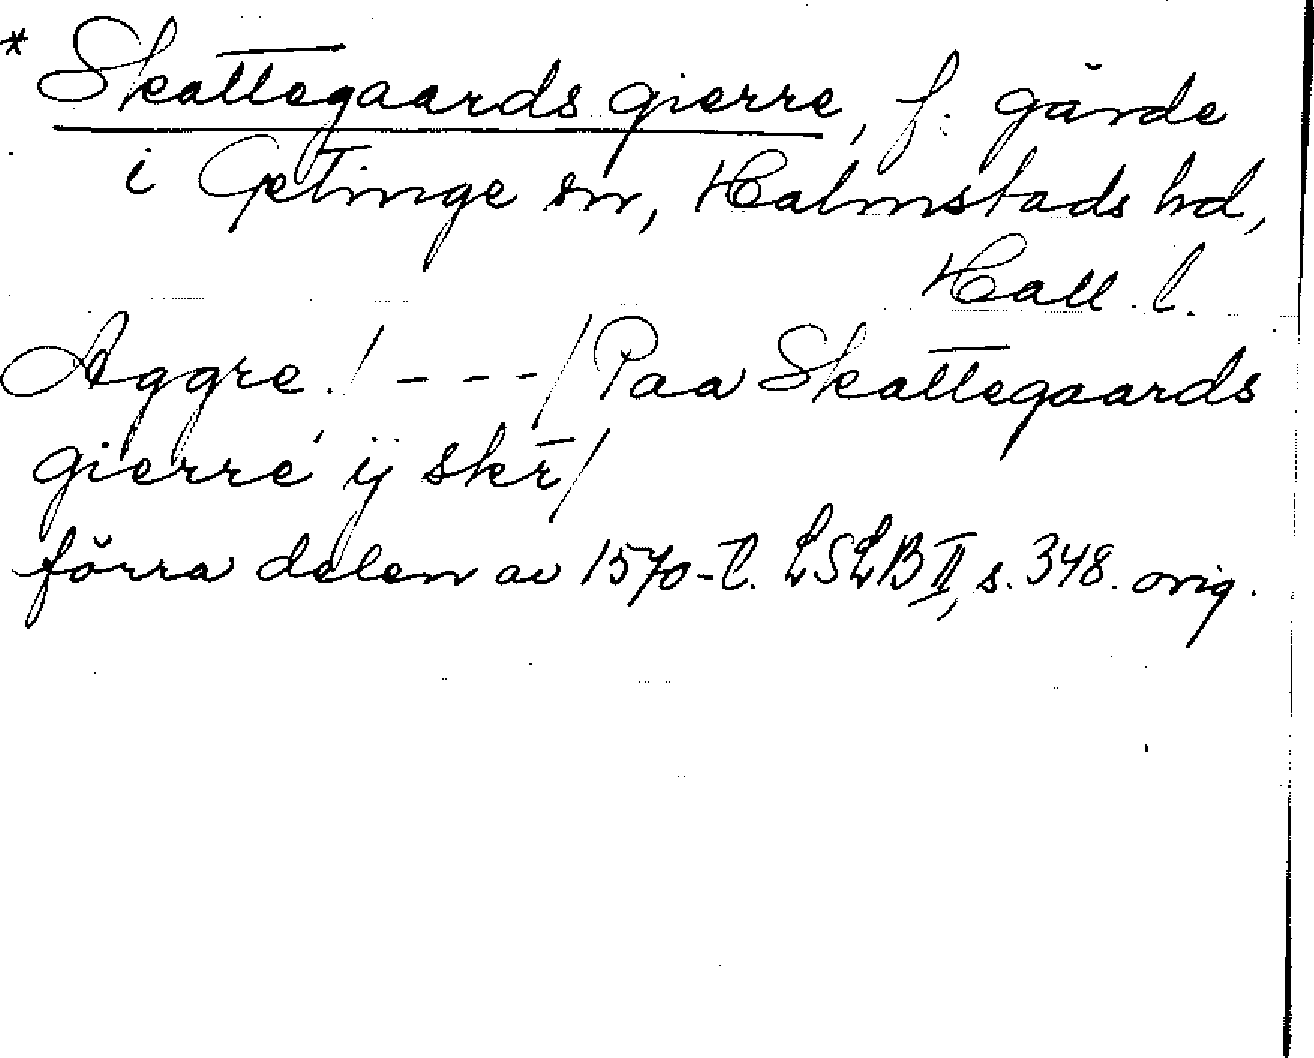 * Skattegaards gierre, f. gärde
i Getinge sn, Halmstads hd,
Hall. l.
Aggre! / - - - / Paa Skattegaards
gierre ij skr /
förra delen av 1570-t. LSLB II, s. 348. orig.